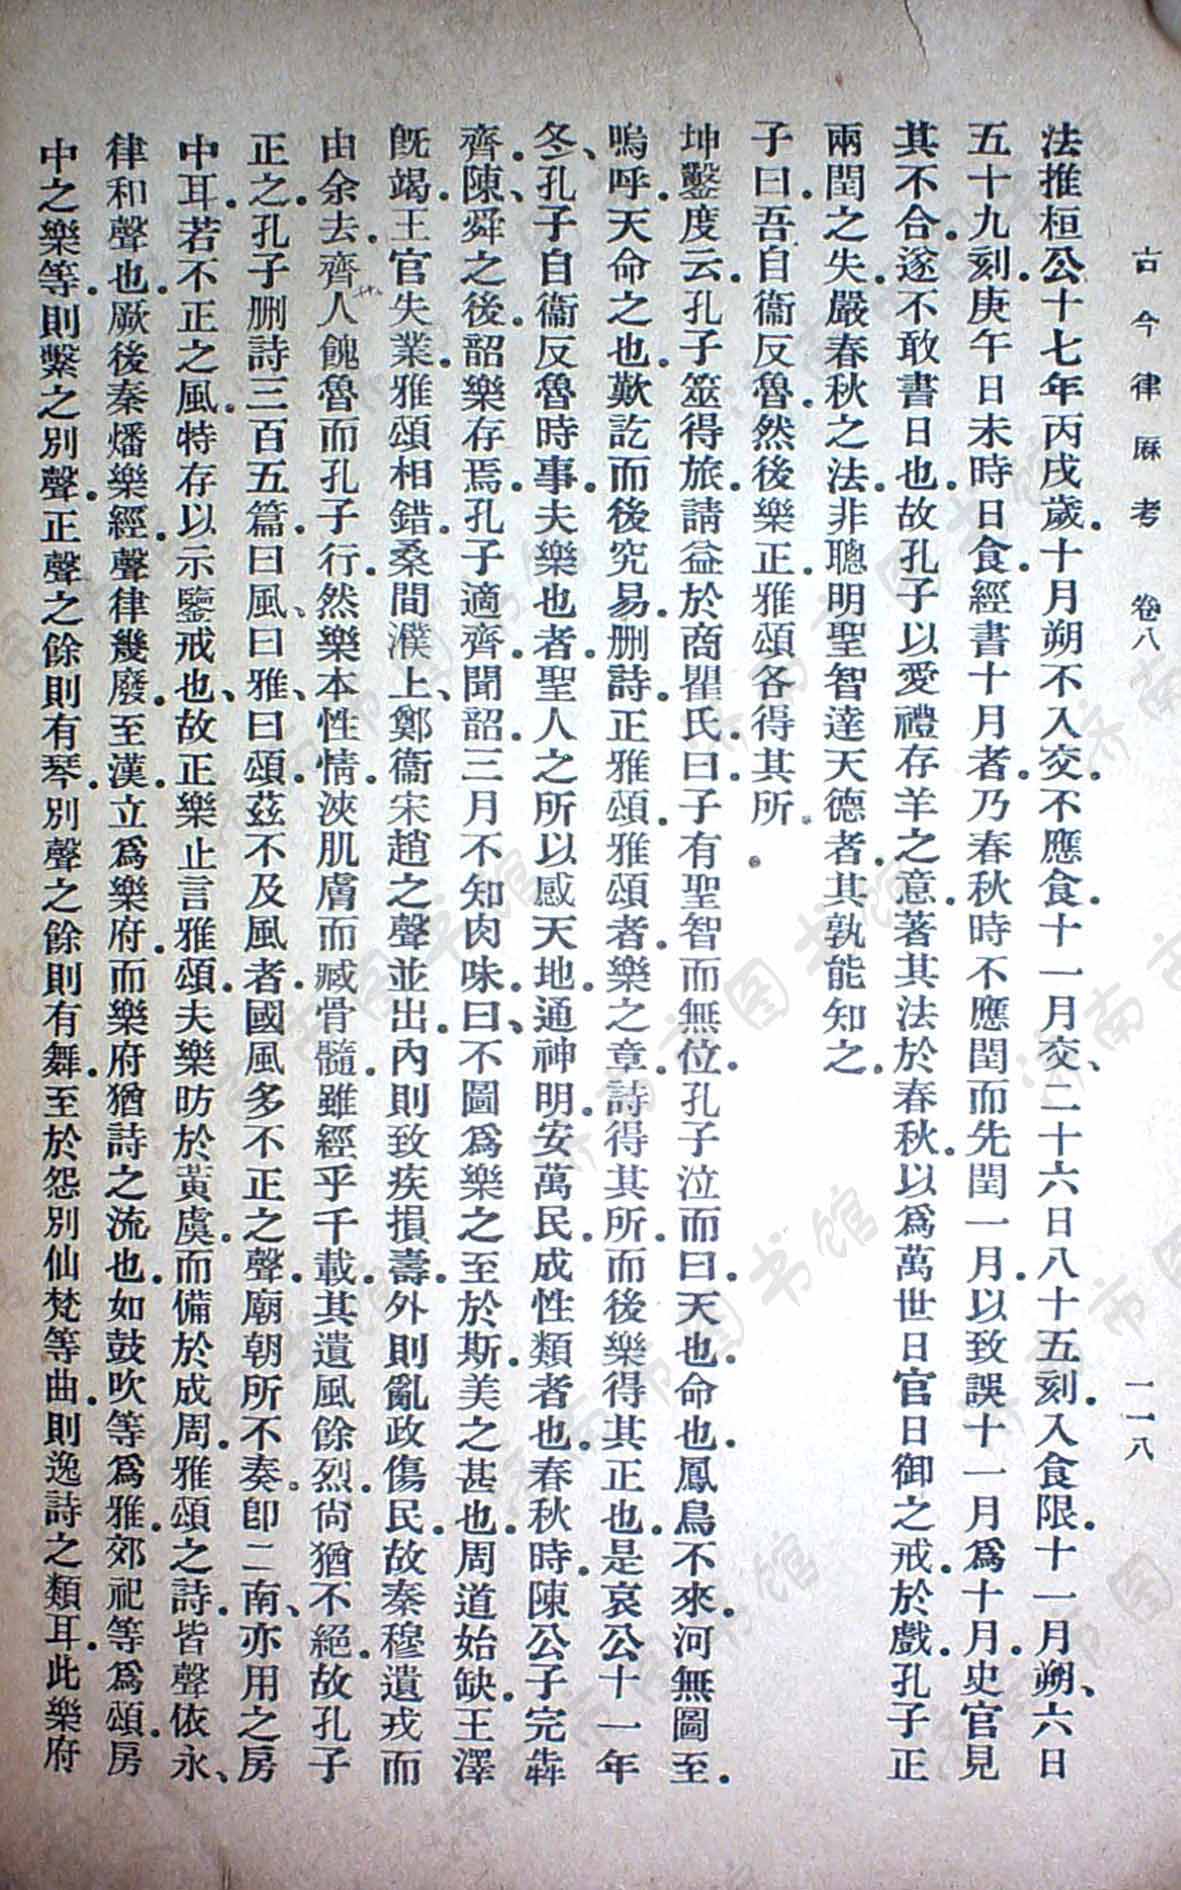 古今律厤考 卷八 一一八
法推桓公十七年丙戌歲。十月朔不入交。不應食。十一月交、二十六日八十五刻。入食限。十一月朔、六日
五十九刻。庚午日未時日食。經書十月者。乃春秋時不應閏而先閏一月。以致誤十一月爲十月。史官見
其不合。遂不敢書日也。故孔子以愛禮存羊之意。著其法於春秋。以爲萬世日官日御之戒。於戲。孔子正
兩閏之失。嚴春秋之法。非聰明聖智達天德者。其孰能知之。
子曰。吾自衞反魯。然後樂正。雅頌各得其所。
坤鑿度云。孔子筮得旅。請益於商瞿氏。曰。子有聖智而無位。孔子泣而曰。天也。命也。鳳鳥不來。河無圖至。
嗚呼。天命之也。歎訖而後究易。删詩。正雅頌。雅頌者。樂之章。詩得其所。而後樂得其正也。是哀公十一年
冬、孔子自衞反魯時事。夫樂也者。聖人之所以感天地。通神明。安萬民。成性類者也。春秋時。陳公子完犇
齊。陳、舜之後。韶樂存焉。孔子適齊。聞韶。三月不知肉味。曰、不圖爲樂之至於斯。美之甚也。周道始缺。王澤
旣竭。王官失業。雅頌相錯。桑間濮上、鄭衞宋趙之聲並出。內則致疾損壽。外則亂政傷民。故秦穆遺戎而
由余去。齊人餽魯而孔子行。然樂本性情。浹肌膚而臧骨髓。雖經乎千載。其遺風餘烈。尙猶不絕。故孔子
正之。孔子删詩三百五篇。曰風、曰雅、曰頌。茲不及風者。國風多不正之聲。廟朝所不奏。卽二南、亦用之房
中耳。若不正之風。特存以示鑒戒也、故正樂止言雅頌。夫樂昉於黃虞。而備於成周。雅頌之詩。皆聲依永、
律和聲也。厥後秦燔樂經。聲律幾廢。至漢。立爲樂府。而樂府猶詩之流也。如鼓吹等爲雅。郊祀等爲頌。房
中之樂等。則繫之別聲。正聲之餘則有琴。別聲之餘則有舞。至於怨別仙梵等曲。則逸詩之類耳。此樂府